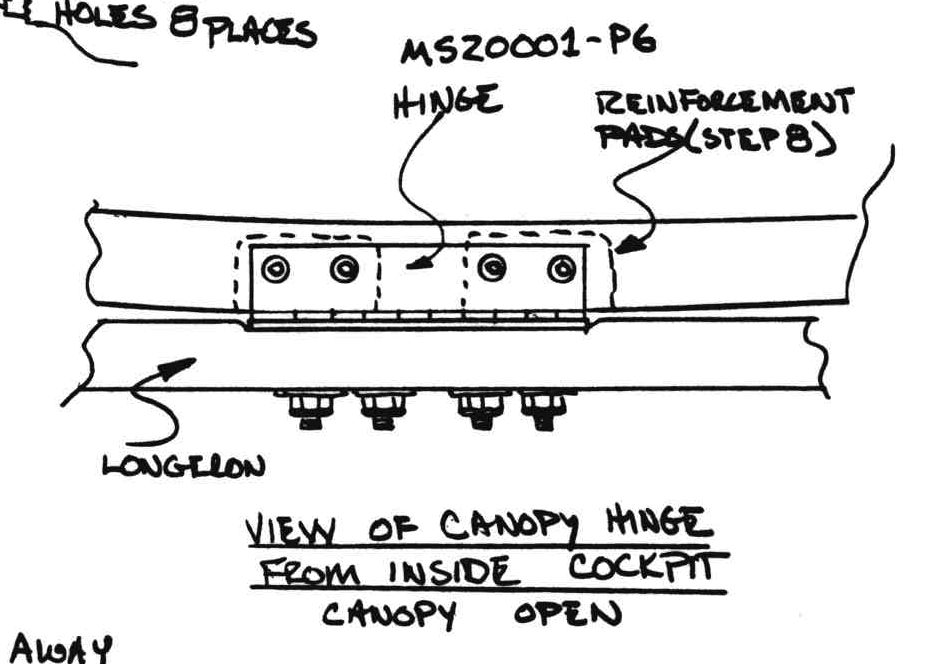 HOLES 8 PLACES
MS20001-P6
HINGE
REINFORCEMENT
PADS (STEP 8)
LONGERON
VIEW OF CANOPY HINGE
FROM INSIDE COCKPIT
CANOPY OPEN
AWAY